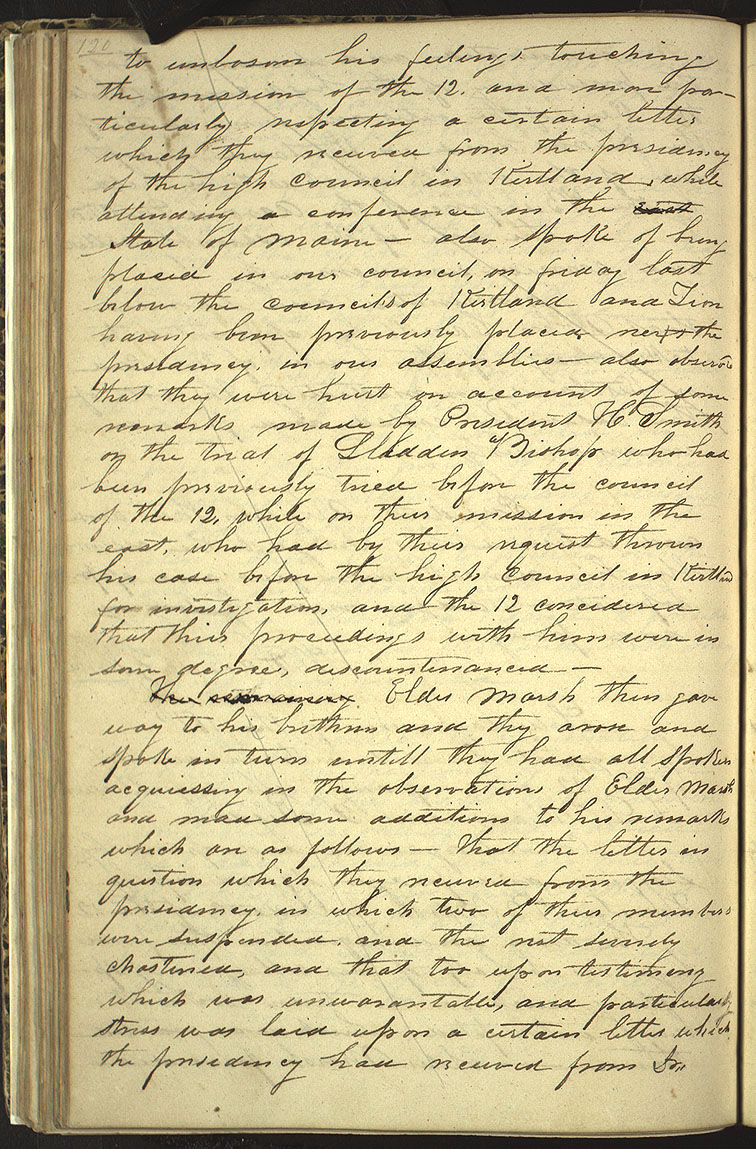 120
to unbosom his feelings touching
the mission of the 12. and more par-
ticularly respecting a certain letter
which they received from the presidency
of the high council in Kirtland, while
attending a conference in the east
State of Maine — also spoke of being
placed in our council, on friday last
below the council's of Kirtland and Zion
having been previously placed next the
presidency, in our assemblies — also observed
that they were hurt on account of some
remarks made by President H Smith
on the trial of Gladden Bishop who had
been previously tried before the council
of the 12, while on their mission in the
east, who had by their request thrown
his case before the high council in Kirtland
for investigation, and the 12 concidered
that their proceedings with him were in
some degree, discountenanced —
The Elder Marsh then gave
way to his brethren and they arose and
spoke in turn untill they had all spoken
acquiessing in the observations of Elder Marsh
and mad some additions to his remarks
which are as follows — That the letter in
question which they received from the
presidency, in which two of their members
were suspended, and the rest severely
chastened, and that too upon testimony
which was unwarantable, and particularly
stress was laid upon a certain letter which
the presidency had received from Dr.